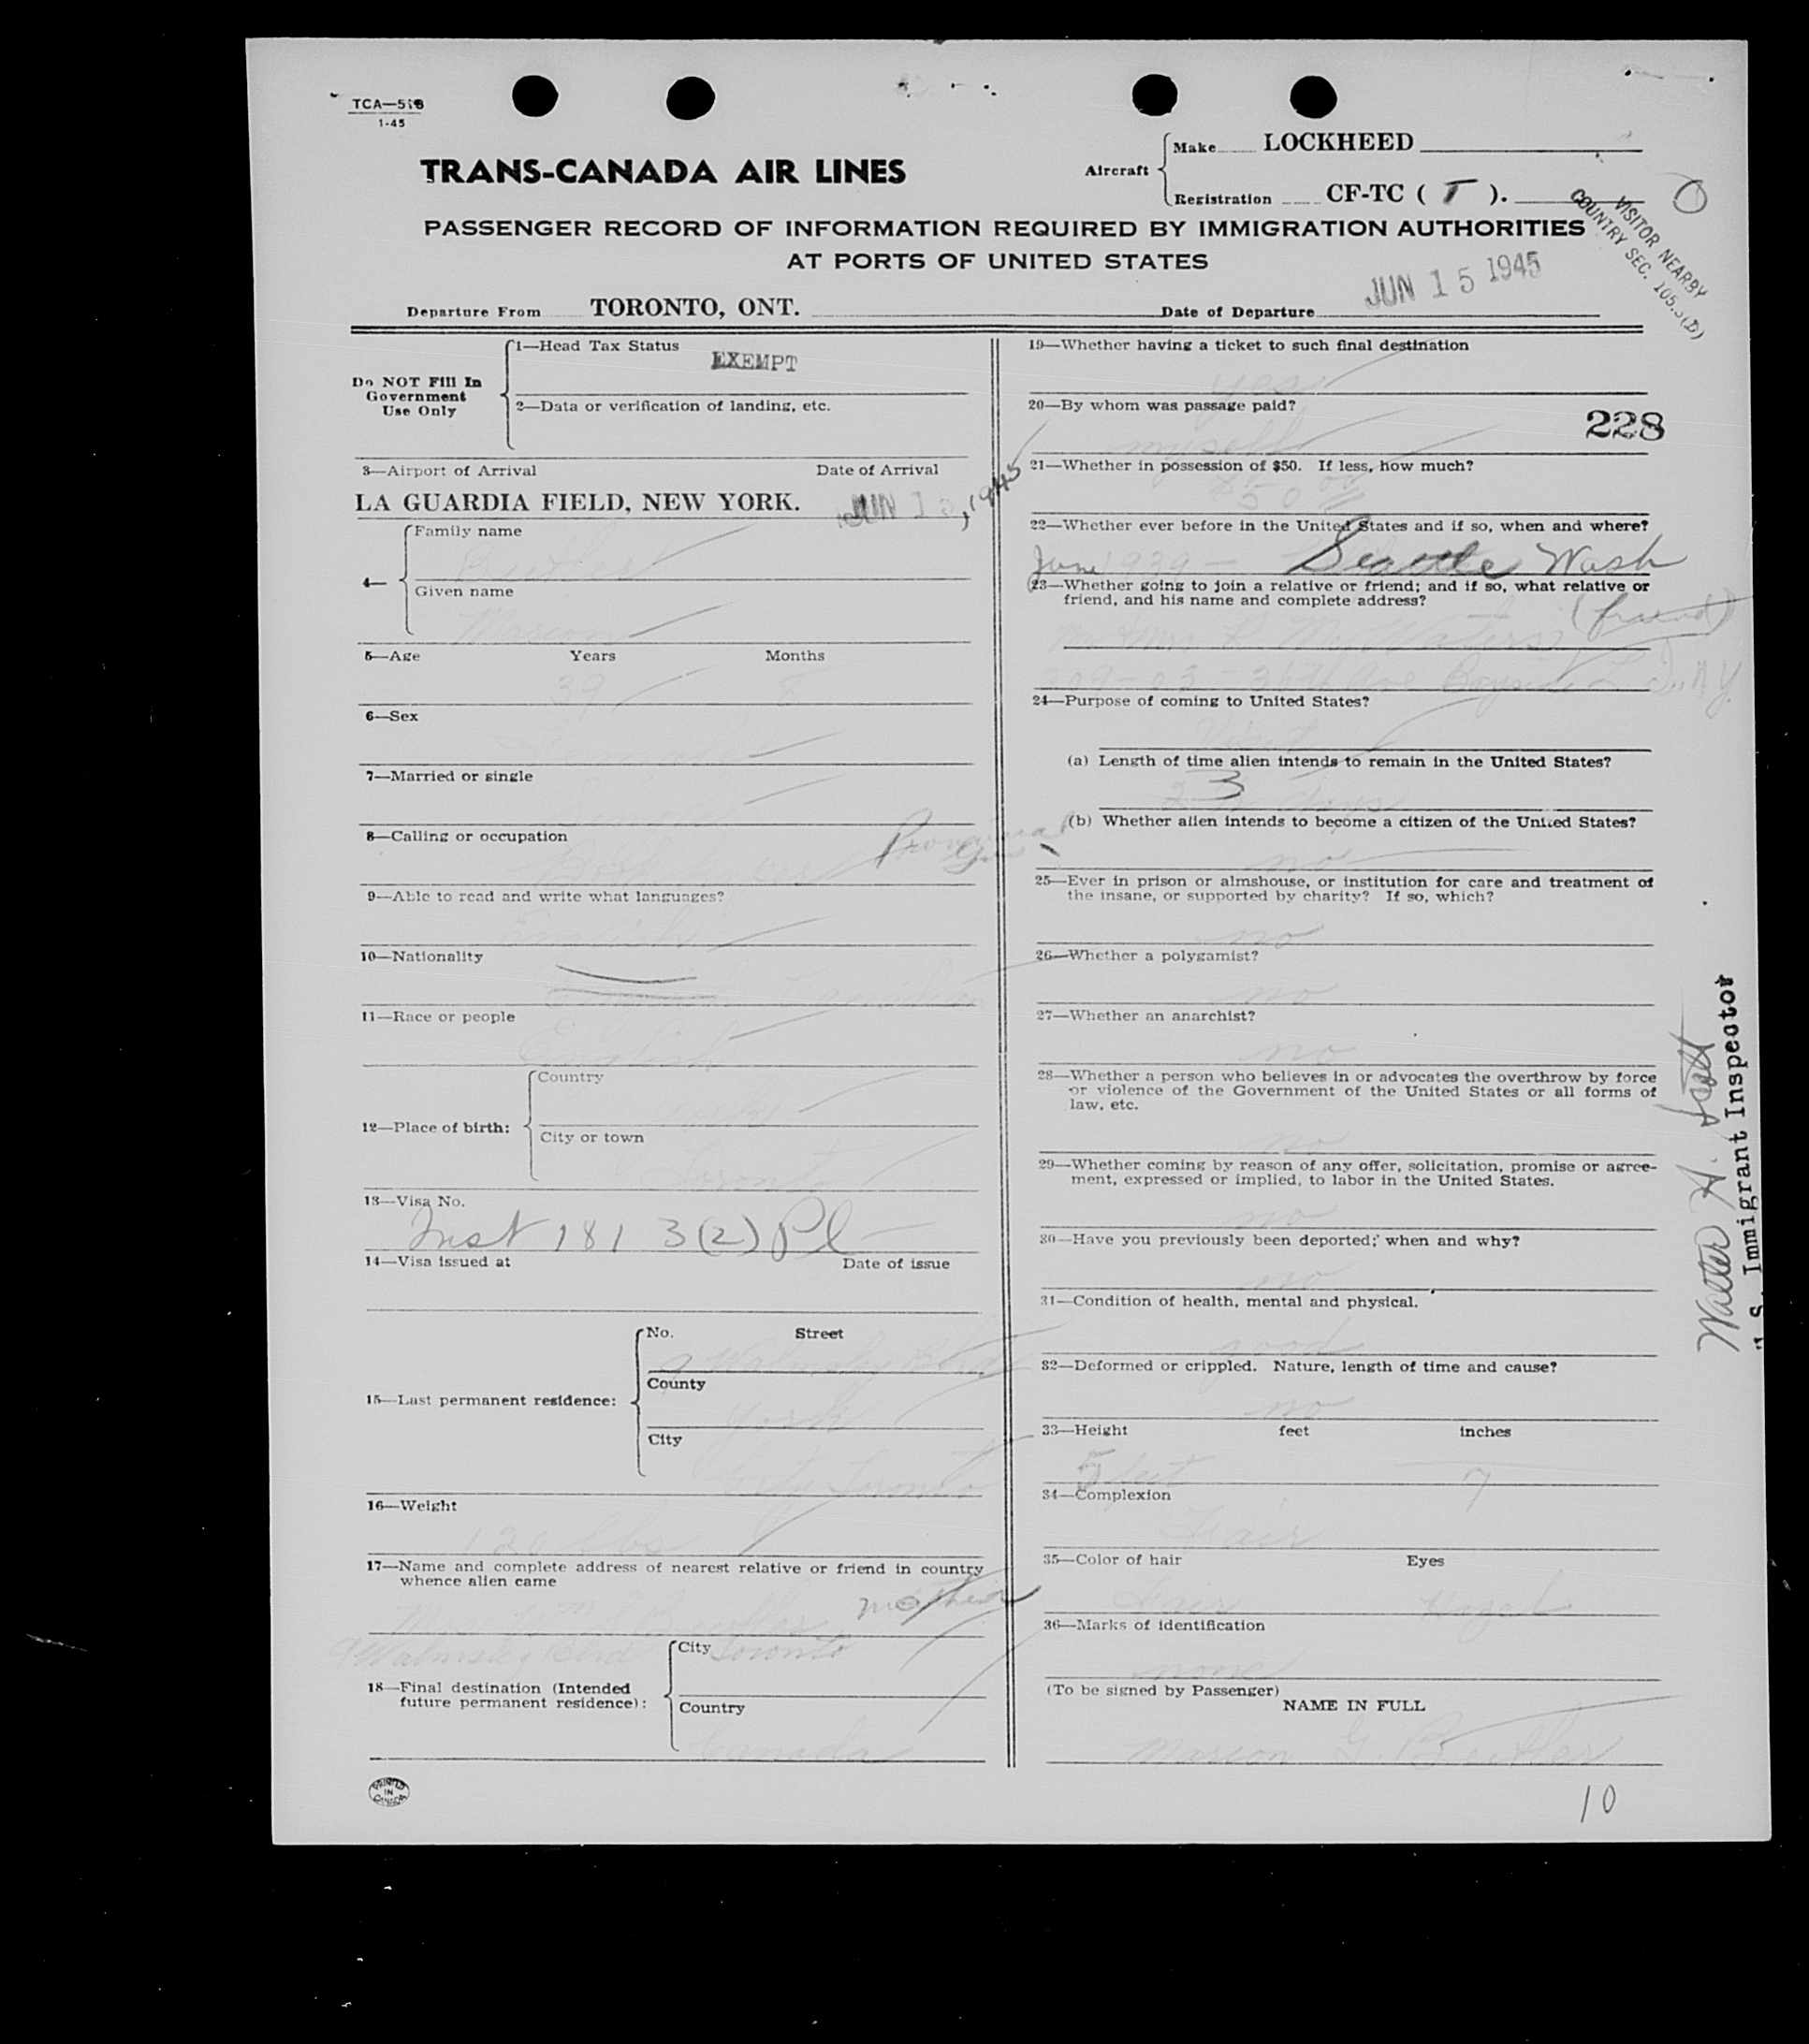 TCA—518
1-45
TRANS-CANADA AIR LINES
Aircraft
Make LOCKHEED
Registration CF-TC ( T ).
VISITOR NEARBY
COUNTRY SEC. 105.3(D)
PASSENGER RECORD OF INFORMATION REQUIRED BY IMMIGRATION AUTHORITIES
AT PORTS OF UNITED STATES
Departure From TORONTO, ONT. Date of Departure JUN 15 1945
Do NOT Fill In
Government
Use Only
1—Head Tax Status
EXEMPT
2—Data or verification of landing, etc.
3—Airport of Arrival Date of Arrival
LA GUARDIA FIELD, NEW YORK. JUN 1 , 1945
4—
Family name
Given name
Marion
5—Age Years Months
39 8
6—Sex
7—Married or single
8—Calling or occupation
9—Able to read and write what languages?
English
10—Nationality
11—Race or people
English
12—Place of birth:
Country
City or town
Toronto
13—Visa No.
Inst 181 3(2) Pl
14—Visa issued at Date of issue
15—Last permanent residence:
No. Street
9 Walmsley Blvd
County
York
City
Toronto
16—Weight
120 lbs
17—Name and complete address of nearest relative or friend in country
whence alien came
Mrs Wm mother
9 Walmsley Blvd Toronto
18—Final destination (Intended
future permanent residence):
City
Country
Canada
PRINTED
IN
CANADA
19—Whether having a ticket to such final destination
yes
20—By whom was passage paid?
228
myself
21—Whether in possession of $50. If less, how much?
$50
22—Whether ever before in the United States and if so, when and where?
June 1939 — Seattle Wash
23—Whether going to join a relative or friend; and if so, what relative or
friend, and his name and complete address?
(friend)
Mr & Mrs Waters
Ave Bayside L.I. N.Y.
24—Purpose of coming to United States?
Visit
(a) Length of time alien intends to remain in the United States?
3
days
(b) Whether alien intends to become a citizen of the United States?
no
25—Ever in prison or almshouse, or institution for care and treatment of
the insane, or supported by charity? If so, which?
no
26—Whether a polygamist?
no
27—Whether an anarchist?
no
28—Whether a person who believes in or advocates the overthrow by force
or violence of the Government of the United States or all forms of
law, etc.
no
29—Whether coming by reason of any offer, solicitation, promise or agree-
ment, expressed or implied, to labor in the United States.
no
30—Have you previously been deported; when and why?
no
31—Condition of health, mental and physical.
good
32—Deformed or crippled. Nature, length of time and cause?
no
33—Height feet inches
5 feet 7
34—Complexion
Fair
35—Color of hair Eyes
Fair Hazel
36—Marks of identification
none
(To be signed by Passenger)
NAME IN FULL
Marion G.
10
Walter H.
U.S. Immigrant Inspector